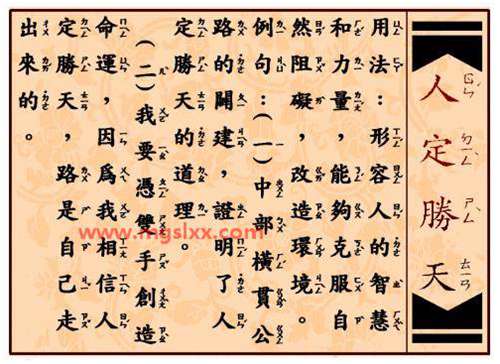 人定勝天
用法：形容人的智慧
和力量，能夠克服自
然阻礙，改造環境。
例句：（一）中部橫貫公
路的闢建，證明了人
定勝天的道理。
（二）我要憑雙手創造
命運，因為我相信人
定勝天，路是自己走
出來的。
www.mgslxx.com